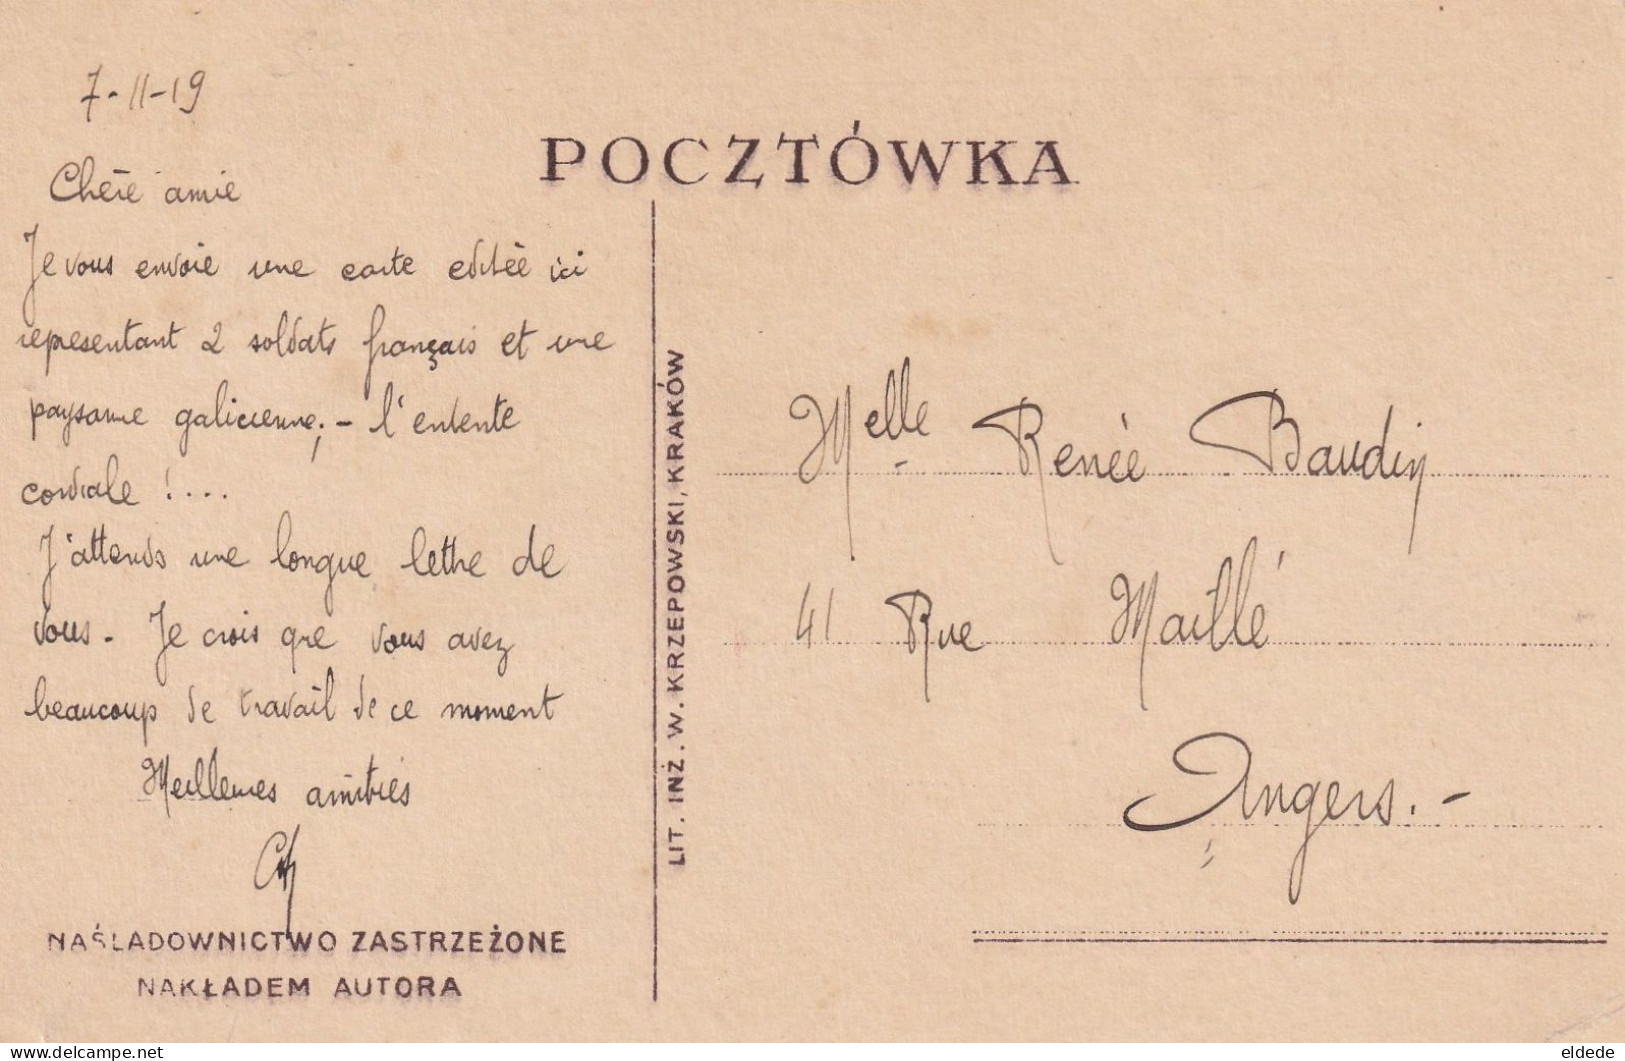 7-11-19
POCZTÓWKA
Chère amie
Je vous envoie une carte editèe ici
representant 2 soldats français et une
paysanne galicienne; - l'entente
cordiale !...
J'attends une longue lettre de
vous. Je crois que vous avez
beaucoup de travail de ce moment
Meilleures amitiés
NAŚLADOWNICTWO ZASTRZEŻONE
NAKŁADEM AUTORA
LIT. INŻ. W. KRZEPOWSKI, KRAKÓW
Melle Renèe Baudin
41 Rue Maillé
Angers.-
eldede